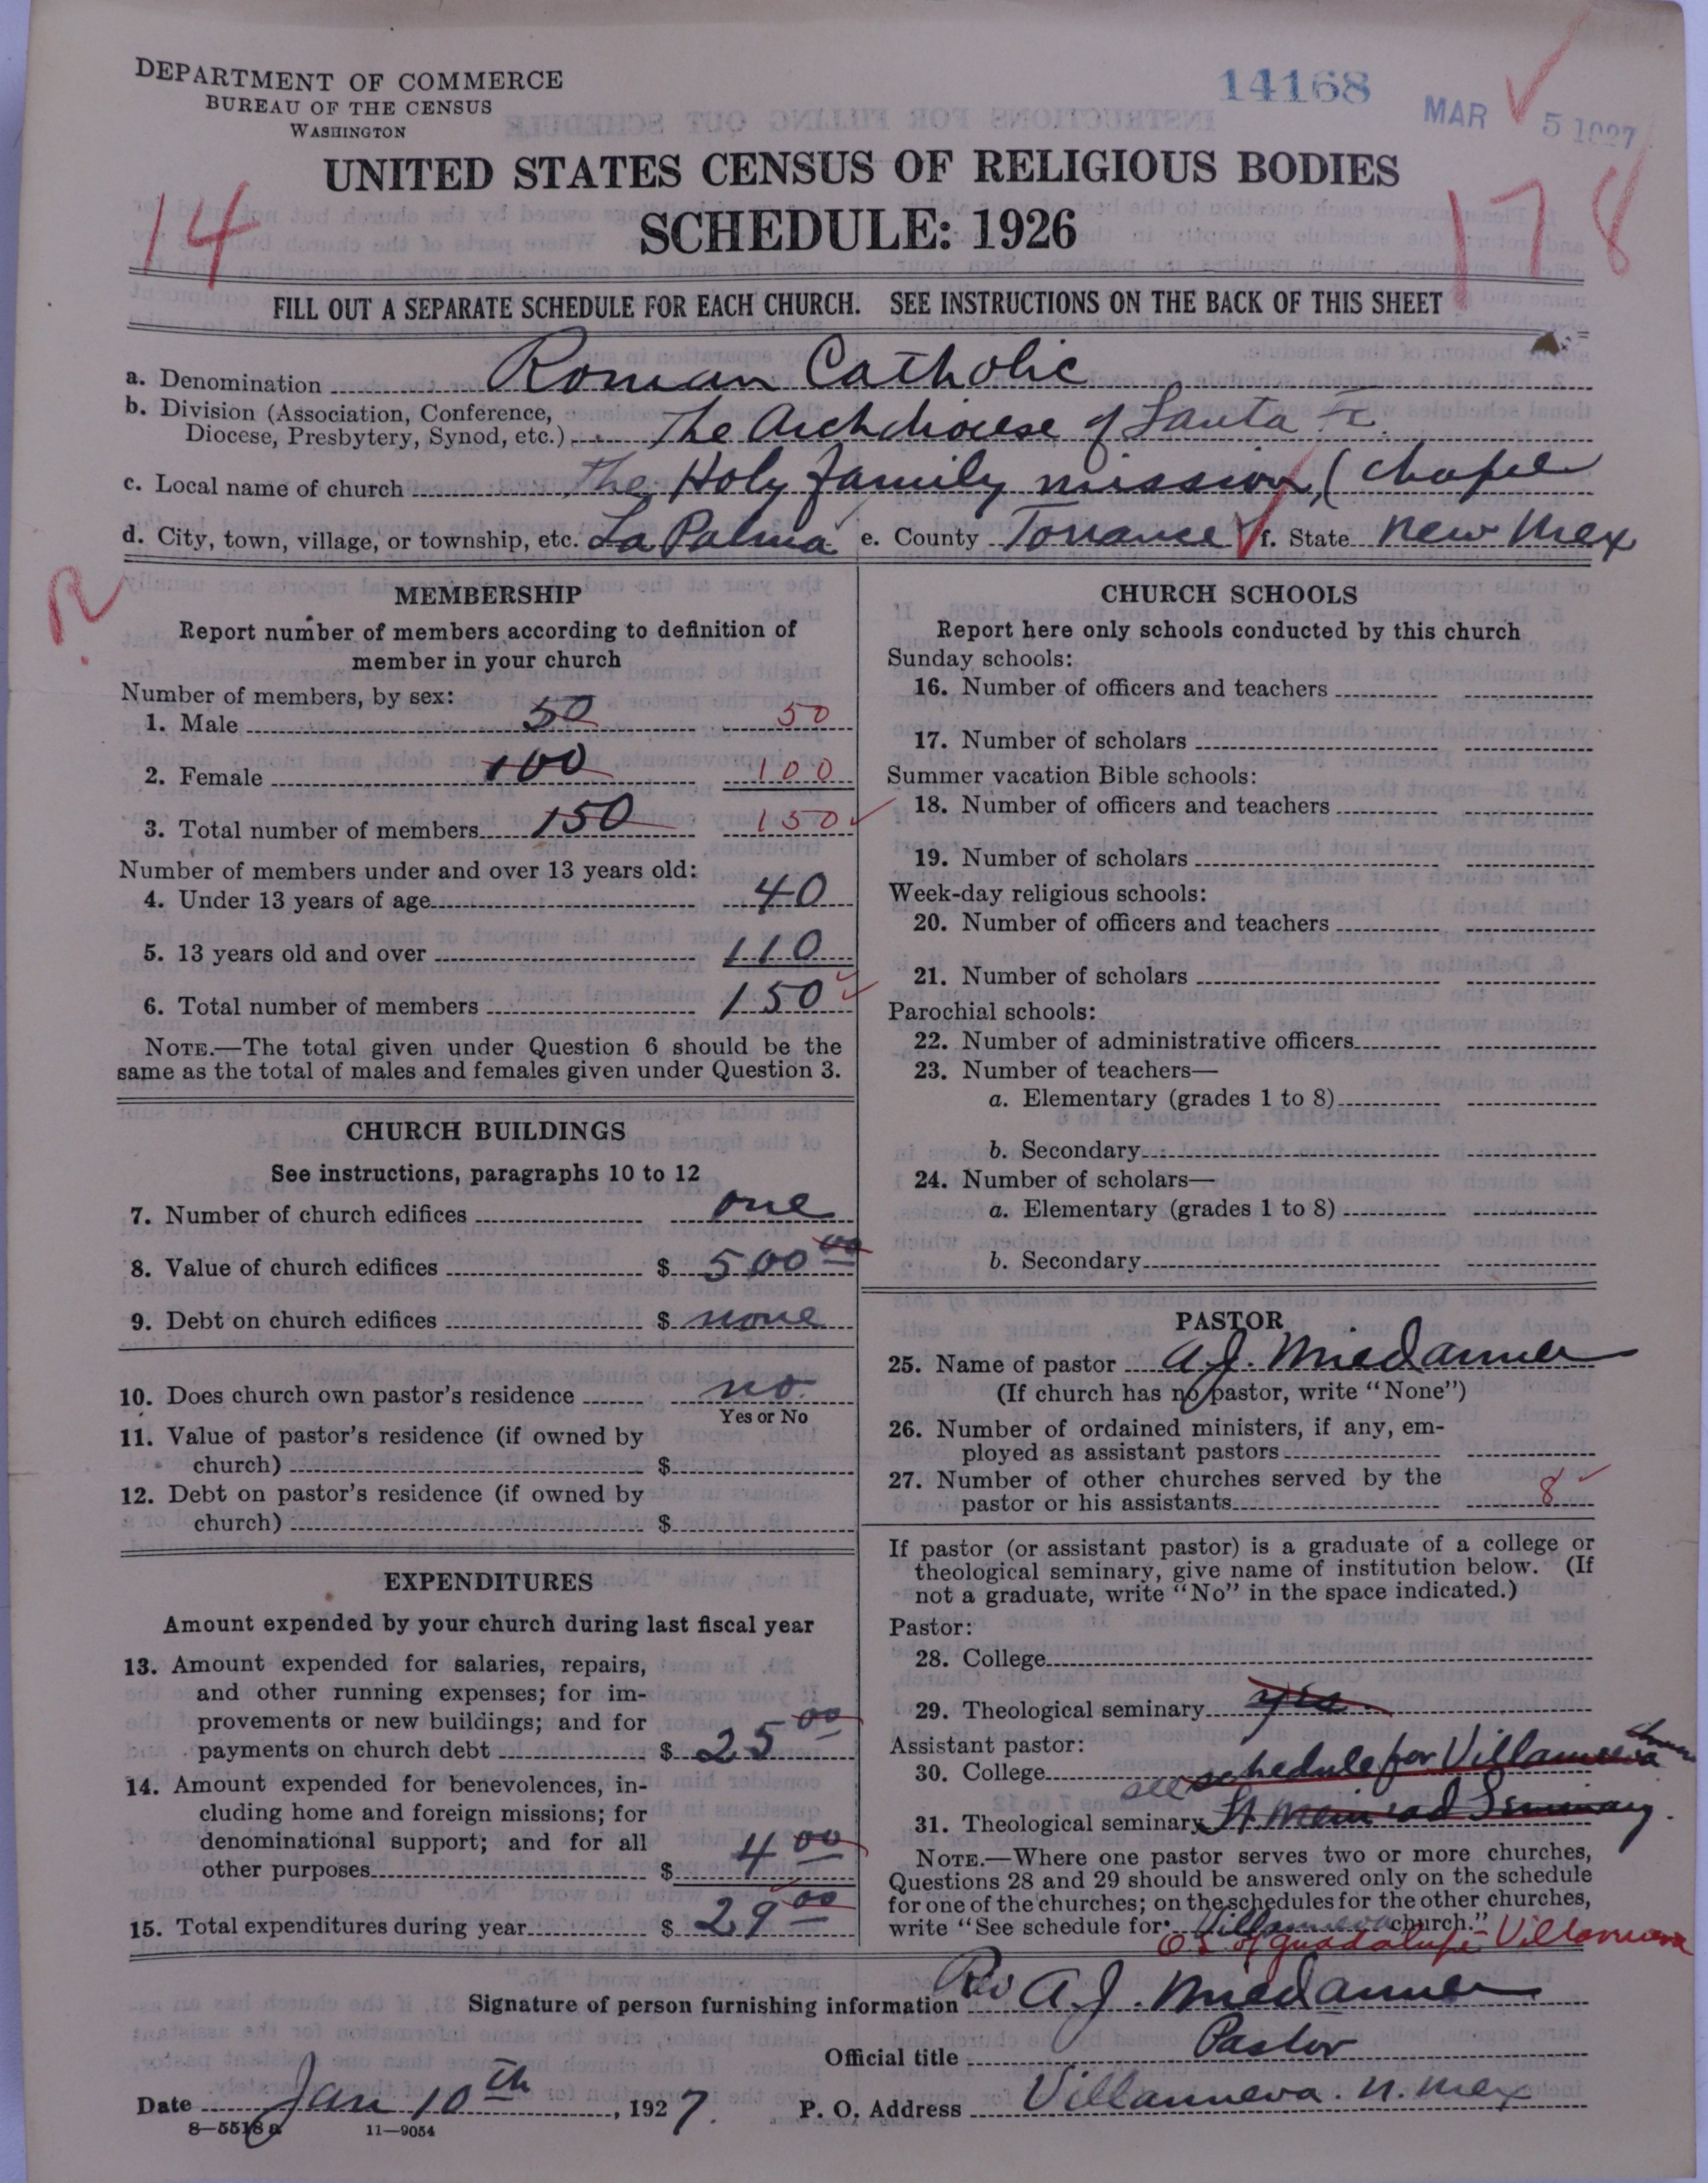 DEPARTMENT OF COMMERCE
BUREAU OF THE CENSUS
WASHINGTON
14168
MAR 5 1927
UNITED STATES CENSUS OF RELIGIOUS BODIES
SCHEDULE: 1926
14
178
FILL OUT A SEPARATE SCHEDULE FOR EACH CHURCH. SEE INSTRUCTIONS ON THE BACK OF THIS SHEET
a. Denomination Roman Catholic
b. Division (Association, Conference,
Diocese, Presbytery, Synod, etc.) The Archdiocese of Santa Fe.
c. Local name of church The Holy Family mission, (Chapel
d. City, town, village, or township, etc. La Palma e. County Torrance f. State New Mex
R
MEMBERSHIP
Report number of members according to definition of
member in your church
Number of members, by sex:
1. Male 50 50
2. Female 100 100
3. Total number of members 150 150
Number of members under and over 13 years old:
4. Under 13 years of age 40
5. 13 years old and over 110
6. Total number of members 150
NOTE.—The total given under Question 6 should be the
same as the total of males and females given under Question 3.
CHURCH BUILDINGS
See instructions, paragraphs 10 to 12
7. Number of church edifices one
8. Value of church edifices $ 500 00
9. Debt on church edifices $ none
10. Does church own pastor's residence no.
Yes or No
11. Value of pastor's residence (if owned by
church) $
12. Debt on pastor's residence (if owned by
church) $
EXPENDITURES
Amount expended by your church during last fiscal year
13. Amount expended for salaries, repairs,
and other running expenses; for im-
provements or new buildings; and for
payments on church debt $ 25 00
14. Amount expended for benevolences, in-
cluding home and foreign missions; for
denominational support; and for all
other purposes $ 4 00
15. Total expenditures during year $ 29 00
CHURCH SCHOOLS
Report here only schools conducted by this church
Sunday schools:
16. Number of officers and teachers
17. Number of scholars
Summer vacation Bible schools:
18. Number of officers and teachers
19. Number of scholars
Week-day religious schools:
20. Number of officers and teachers
21. Number of scholars
Parochial schools:
22. Number of administrative officers
23. Number of teachers—
a. Elementary (grades 1 to 8)
b. Secondary
24. Number of scholars—
a. Elementary (grades 1 to 8)
b. Secondary
PASTOR
25. Name of pastor A. J. Miedanner
(If church has no pastor, write "None")
26. Number of ordained ministers, if any, em-
ployed as assistant pastors
27. Number of other churches served by the
pastor or his assistants 8
If pastor (or assistant pastor) is a graduate of a college or
theological seminary, give name of institution below. (If
not a graduate, write "No" in the space indicated.)
Pastor:
28. College
29. Theological seminary yes
Assistant pastor:
30. College see schedule for Villanueva
31. Theological seminary St Meinrad Seminary.
NOTE.—Where one pastor serves two or more churches,
Questions 28 and 29 should be answered only on the schedule
for one of the churches; on the schedules for the other churches,
write "See schedule for Villanueva church."
of Guadalupe - Villanueva
Signature of person furnishing information Rev A. J. Miedanner
Official title Pastor
Date Jan 10th, 1927. P. O. Address Villanueva. N. Mex
8—5518 a 11—9054